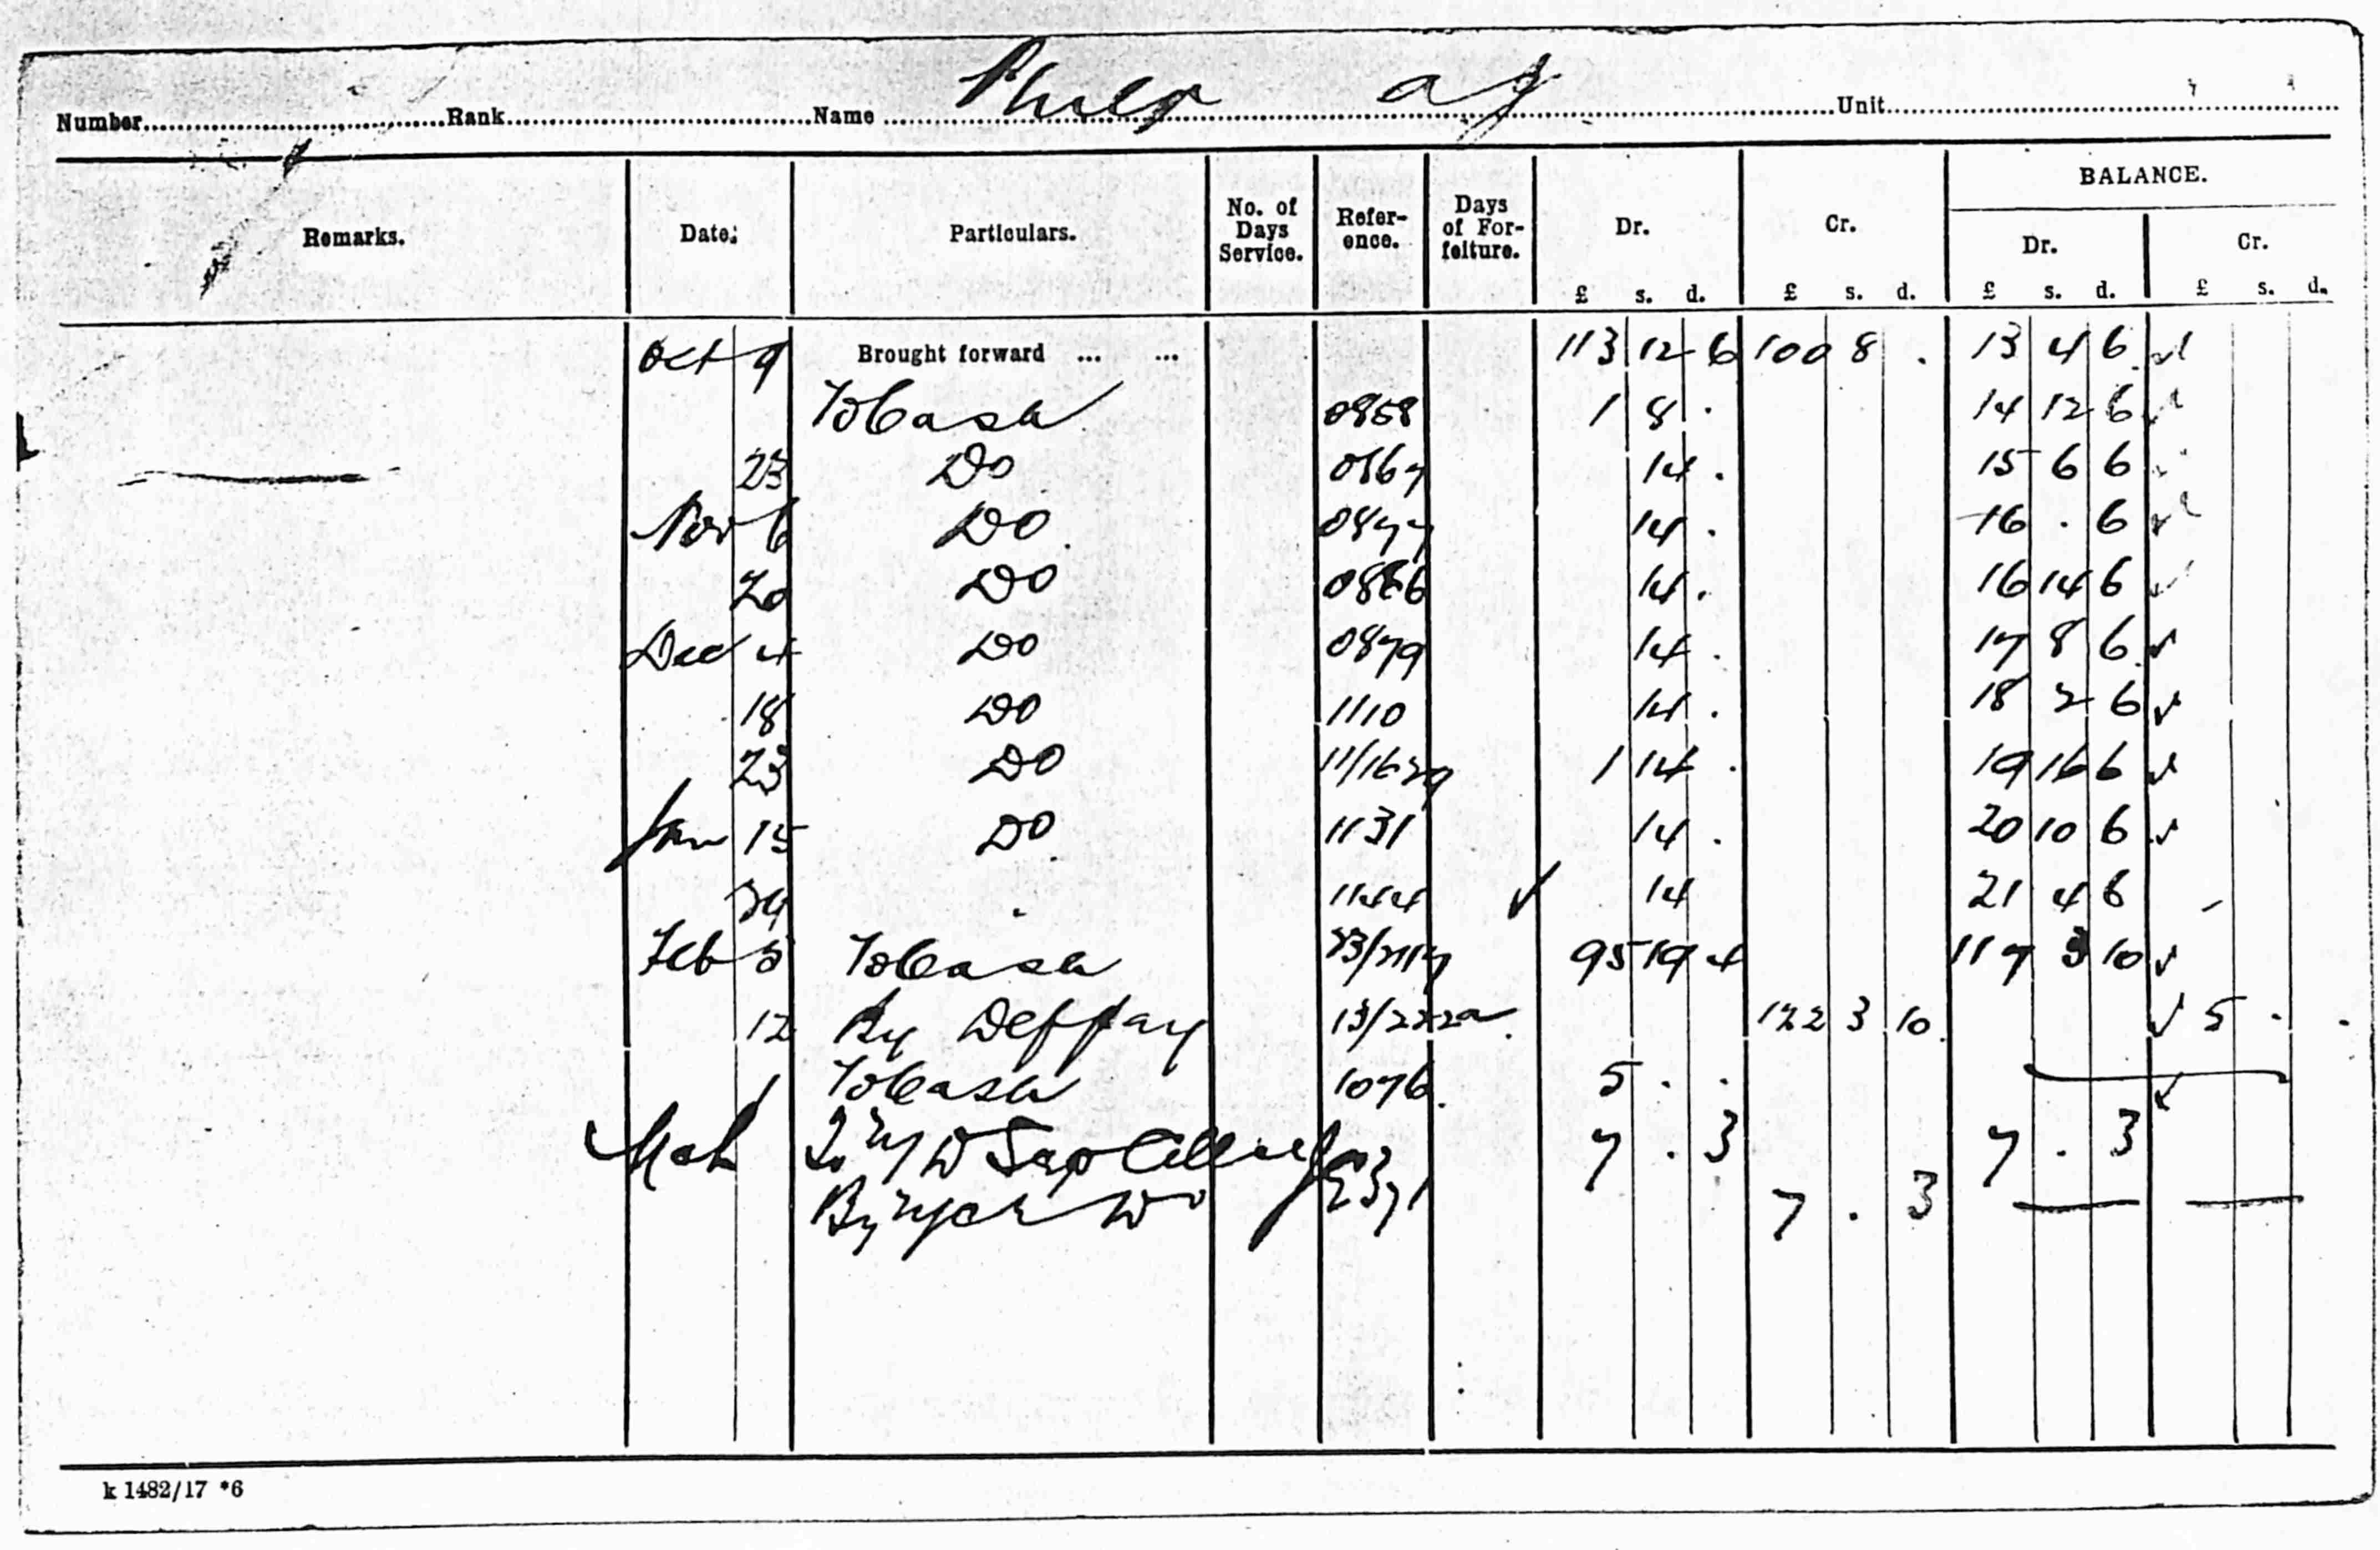 Number Rank Name A J Unit
Remarks. Date. Particulars. No. of Days Service. Reference. Days of Forfeiture. Dr. Cr. BALANCE.
Dr. Cr.
£ s. d. £ s. d. £ s. d. £ s. d.
Oct 9 Brought forward ... ... 113 12 6 100 8 . 13 4 6
To Cash 0858 1 8 . 14 12 6
23 Do 0867 14 . 15 6 6
Nov 6 Do 0877 14 . 16 . 6
20 Do 14 . 16 14 6
Dec 4 Do 0879 14 . 17 8 6
18 Do 1110 14 . 18 2 6
23 Do 1 14 . 19 16 6
Jan 15 Do 1131 14 . 20 10 6
29 1144 14 21 4 6
Feb 5 To Cash 95 19 4 117 3 10
12 By Def pay 13/222a 122 3 10 5 . .
1 To Cash 1076 5 . .
Mch 7 . 3 7 . 3
By 2371 7 . 3
k 1482/17 *6